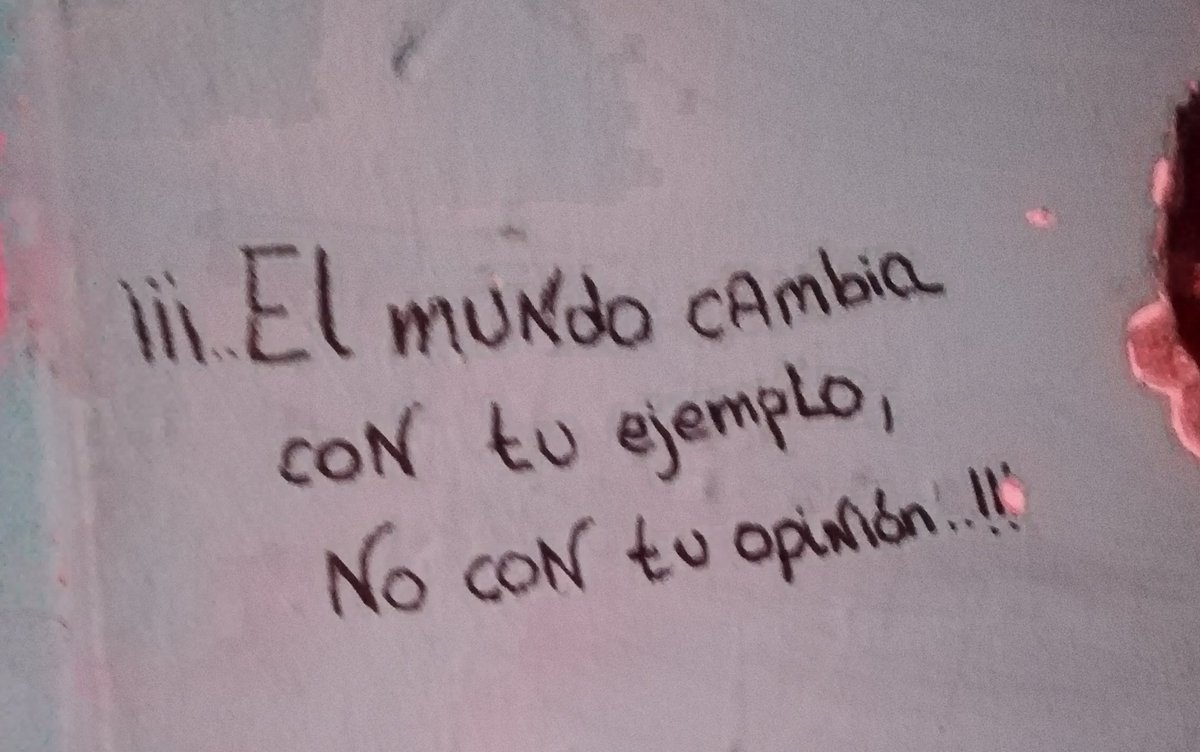 ¡¡¡..El mundo cambia
con tu ejemplo,
No con tu opinión..!!!